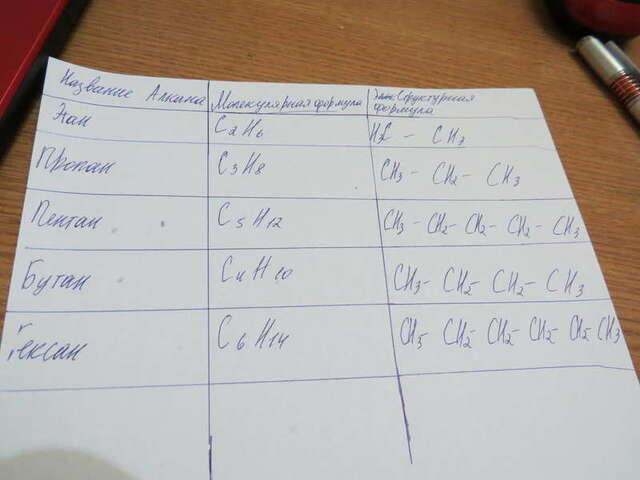 Название Алкина Молекулярная формула Структурная
формула
Этан C2H6 H3C - CH3
Пропан C3H8 CH3 - CH2 - CH3
Пентан C5H12 CH3 - CH2 - CH2 - CH2 - CH3
Бутан C4H10 CH3 - CH2 - CH2 - CH3
Гексан C6H14 CH3 - CH2 - CH2 - CH2 - CH2 - CH3